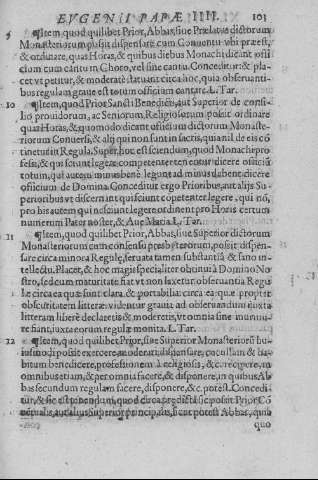 EVGENII PAPÆ IIII. 101
9 ¶Item, quod quilibet Prior, Abbas, siue Prælatus dictorum
Monasteriorum possit dispensare cum Conuentu vbi præest,
& ordinare, quas Horas, & quibus diebus Monachi dicant offi
cium cum cantu in Choro, vel sine cantu. Conceditur: & pla-
cet vt petitur, & moderatè statuant circa hoc, quia obseruanti-
bus regulam graue est totum officium cantare. L. Tar.
10 ¶Item, quod Prior Sancti Benedicti, aut Superior de consi-
lio prouidorum, ac Seniorum, Religiosorum possit ordinare
quas Horas, & quomodo dicant officium dictorum Monaste-
riorum Conuersi, & alij qui non sunt in sacris, quia nil de eis cō
tinetur in Regula. Super hoc est sciendum, quod Monachi pro-
fessi, & qui sciunt legere competenter tenentur dicere officiū
totum, qui autem minus benè legunt ad minus debent dicere
officium de Domina. Conceditur ergo Prioribus, aut alijs Su-
perioribus vt discernant qui sciunt copetenter legere, qui nō,
pro his autem qui nosciunt legere ordinent pro Horis certum
numerum Pater noster, & Aue Maria. L. Tar.
11 ¶Item, quod quilibet Prior, Abbas, siue Superior dictorum
Monasteriorum cum consensu presbyterorum, possit dispen-
sare circa minora Regulę, seruata tamen substantia & sano in-
tellectu. Placet, & hoc magis specialiter obtinui à Domino No
stro, sed cum maturitate fiat vt non laxetur obseruantia Regu
læ circa ea quæ sunt clara & portabilia: circa ea quæ propter
obscuritatem litteræ videntur grauia ad obseruandum iuxta
litteram liberè declaretis & moderetis, vt omnia sine murmu-
re fiant, iuxta eorum regulæ monita. L. Tar.
12 ¶Item, quod quilibet Prior, siue Superior Monasteriorū hu
iusmodi possit exercere dispensare, & ha-
bitum benedicere, professionem à religiosis, & c. recipere, in
omnibus etiam, & per omnia facere, & disponere, in quibus Ab
bas secundum regulam facere, disponere, & c. potest. Concedi-
tur, & sic est quod circa prædicta sic possit Prior Cō
uentualis, aut alius Superior principalis, sicut potest Abbas, quia
quo